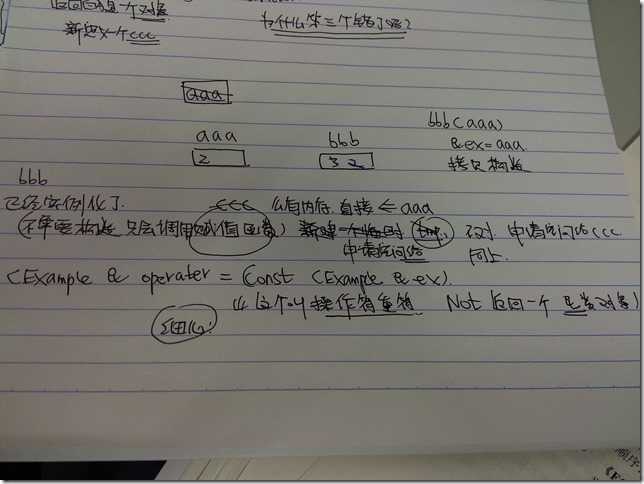 返回的是一个对象
新定义一个ccc
为什么第三个错了呢?
aaa
aaa
2
bbb
3 2
bbb(aaa)
&ex=aaa
拷贝构造
bbb
已经实例化了
ccc 没有内存 直接 ← aaa
(不需要构造 只会调用赋值函数) 新建一个临时 tmp
申请空间给
不对 申请空间给ccc
同上
CExample & operater = (const CExample & ex)
这个叫操作符重载 Not 返回一个 类对象)